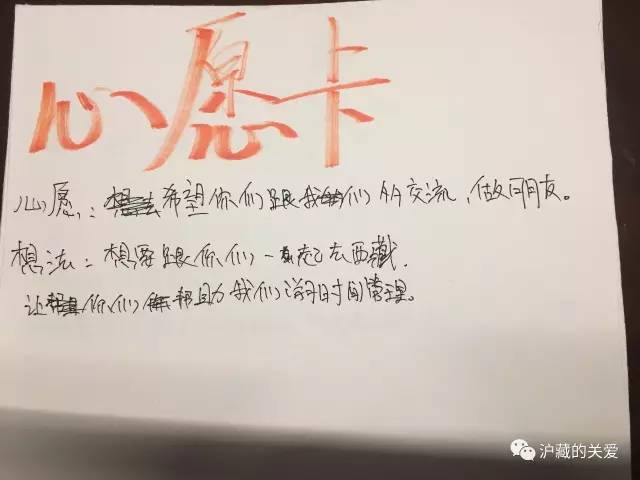 心愿卡
心愿：希望你们跟我们多交流，做朋友。
想法：想要跟你们一起去西藏.
让你们帮助我们学习时间管理。
沪藏的关爱